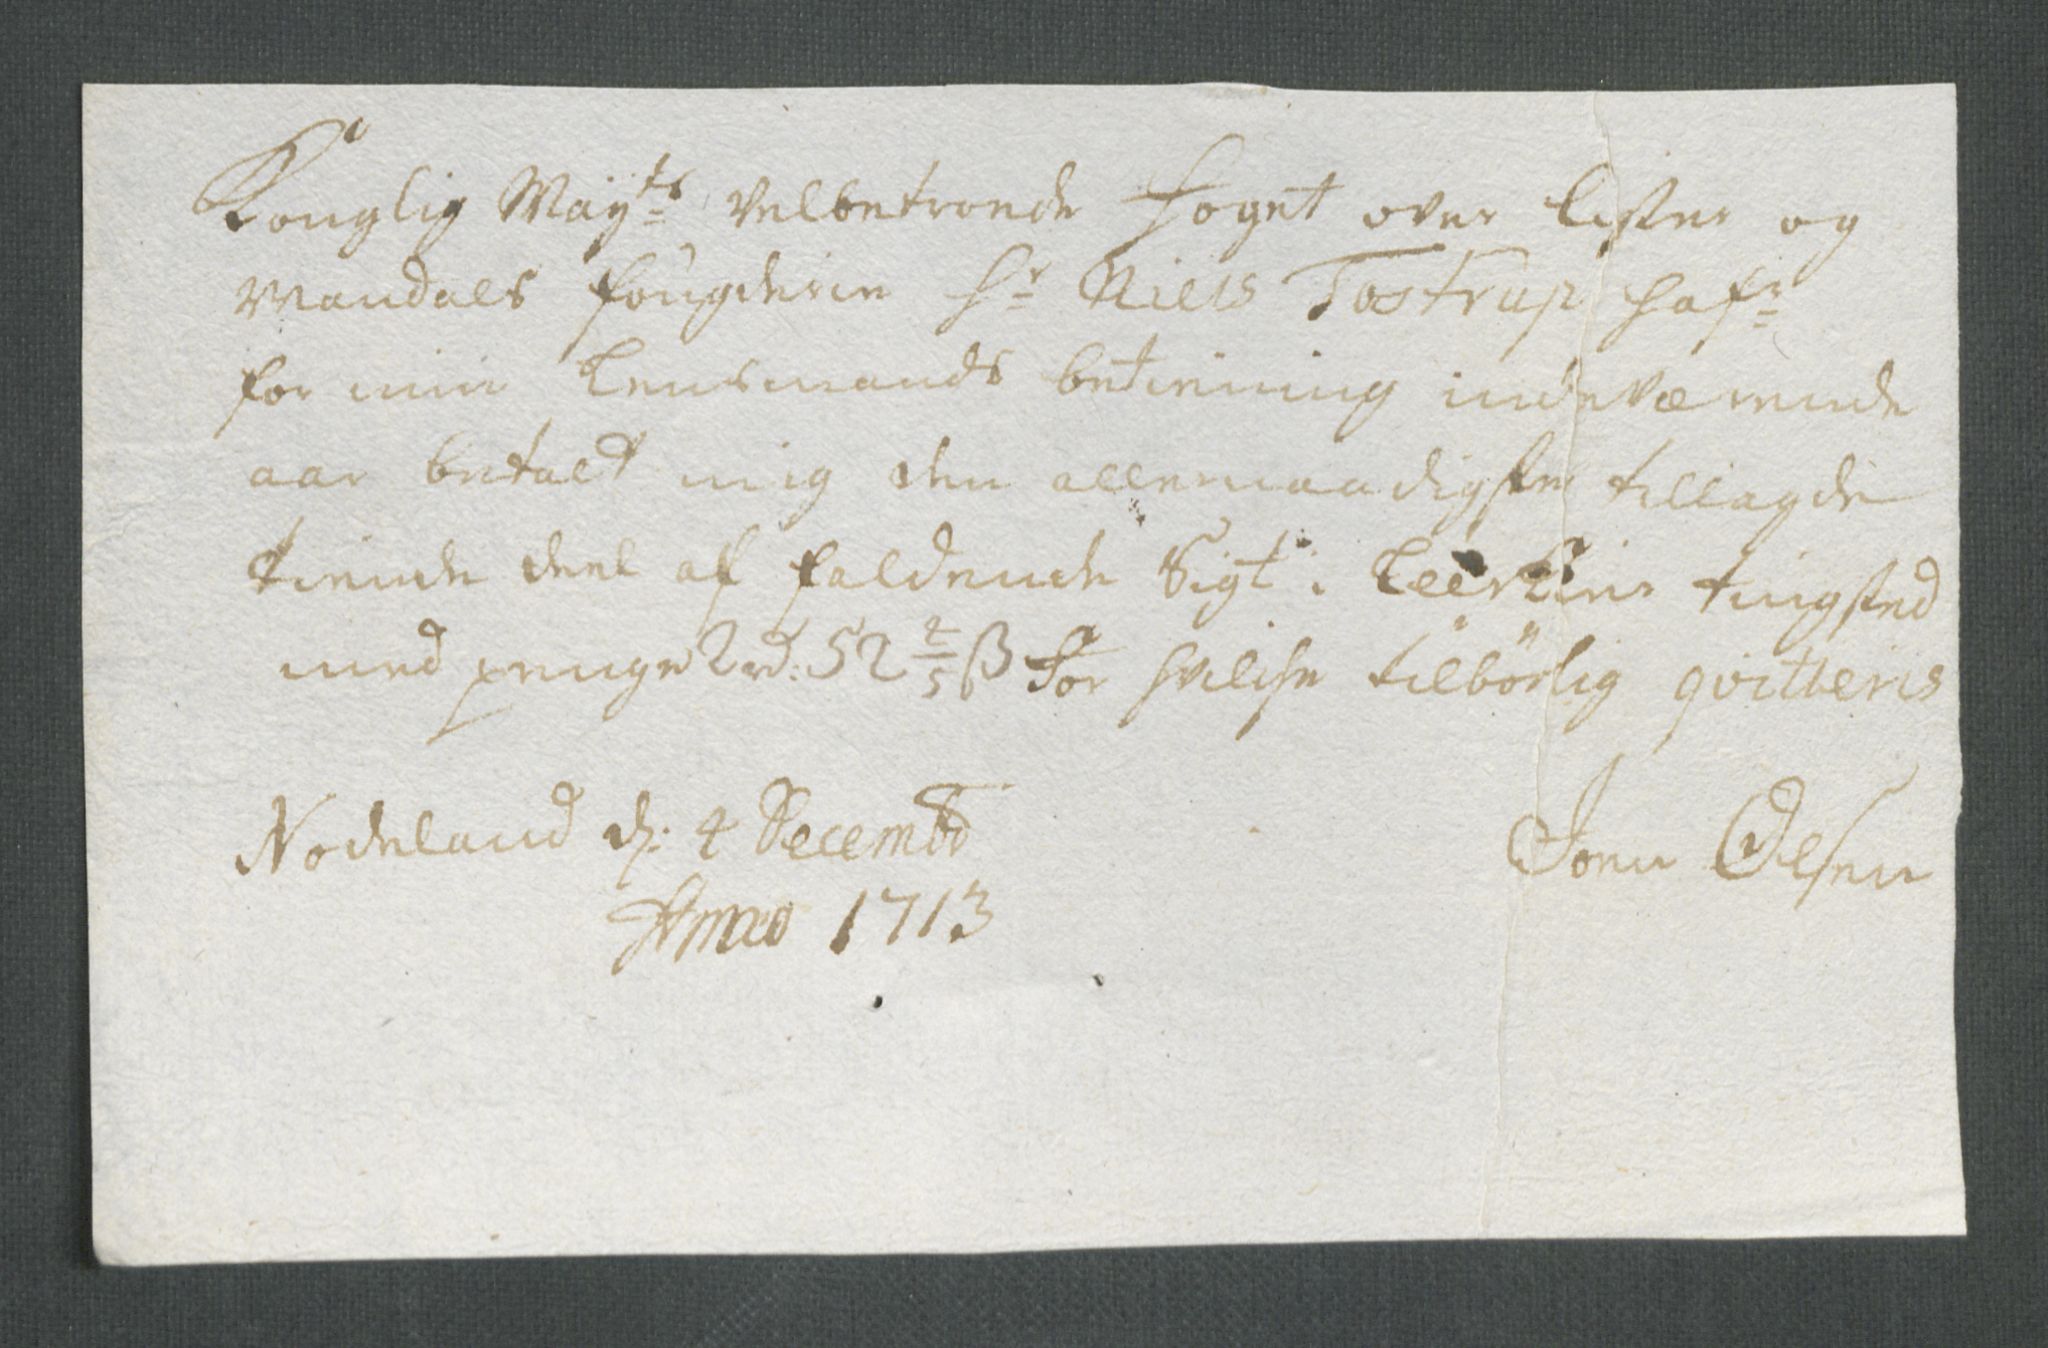 Konglig Mayts velbetroede foget over Lister og
Mandals fougderie Hr Niels Tostrup hafr
for min Lensmands betiening indeværende
aar betalt mig den allernaadigste tillagde
tiende deel af faldende Sigt i tingsted
med penge 2 rd: 52 2/5 β for hvilche tilbörlig qvitteris
Nodeland d: 4 Decembr
Anno 1713
Joen Olsen